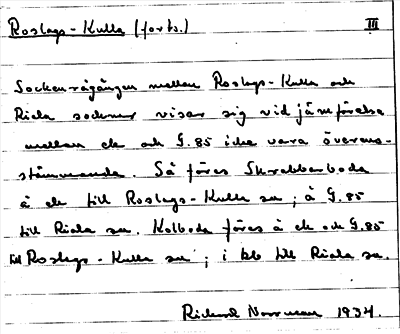 Roslags-Kulla (forts.) III
Sockenrågången mellan Roslags-Kulla och
Riala socknar visar sig vid jämförelse
mellan ek och G.85 icke vara överens-
stämmande. Så föres Skrabbarboda
å ek till Roslags-Kulla sn; å G.85
till Riala sn. Kolboda föres å ek och G.85
till Roslags-Kulla sn; i kb till Riala sn.
Rickard Norrman 1934.